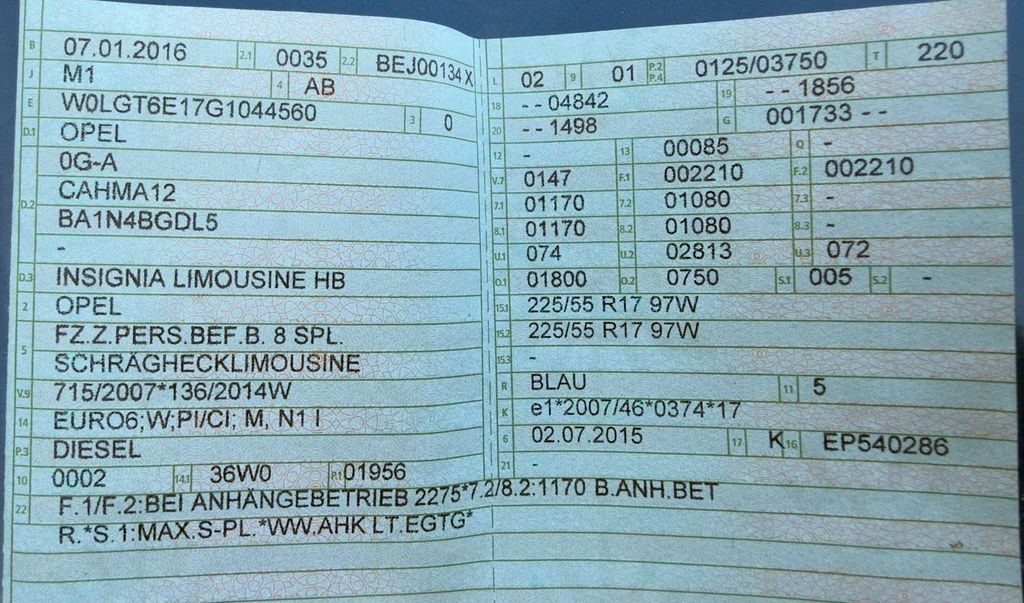 B 07.01.2016 2.1 0035 2.2 BEJ00134 X
J M1 4 AB
E W0LGT6E17G1044560 3 0
D.1 OPEL
0G-A
D.2 CAHMA12
BA1N4BGDL5
-
D.3 INSIGNIA LIMOUSINE HB
2 OPEL
5 FZ.Z.PERS.BEF.B. 8 SPL.
SCHRÄGHECKLIMOUSINE
V.9 715/2007*136/2014W
14 EURO6;W;PI/CI; M, N1 I
P.3 DIESEL
10 0002 14.1 36W0 P.1 01956
22 F.1/F.2:BEI ANHÄNGEBETRIEB 2275*7.2/8.2:1170 B.ANH.BET
R.*S.1:MAX.S-PL.*WW.AHK LT.EGTG*
L 02 9 01 P.2 P.4 0125/03750 T 220
18 --04842 19 --1856
20 --1498 G 001733--
12 - 13 00085 Q -
V.7 0147 F.1 002210 F.2 002210
7.1 01170 7.2 01080 7.3 -
8.1 01170 8.2 01080 8.3 -
U.1 074 U.2 02813 U.3 072
O.1 01800 O.2 0750 S.1 005 S.2 -
15.1 225/55 R17 97W
15.2 225/55 R17 97W
15.3 -
R BLAU 11 5
K e1*2007/46*0374*17
6 02.07.2015 17 K 16 EP540286
21 -